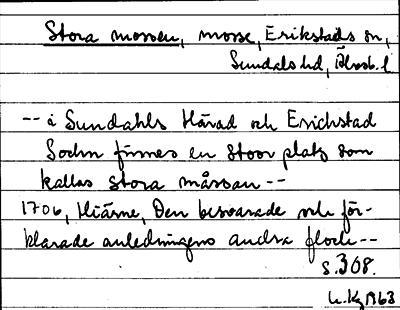 Stora mossen, mosse, Erikstads sn,
Sundals hd, Älvsb. l
-- i Sundahls Härad och Erichstad
Sochn finnes en stoor platz som
kallas stora måssan --
1706, Hiärne, Den besvarade och för-
klarade anledningens andra flock --
s. 308.
1963